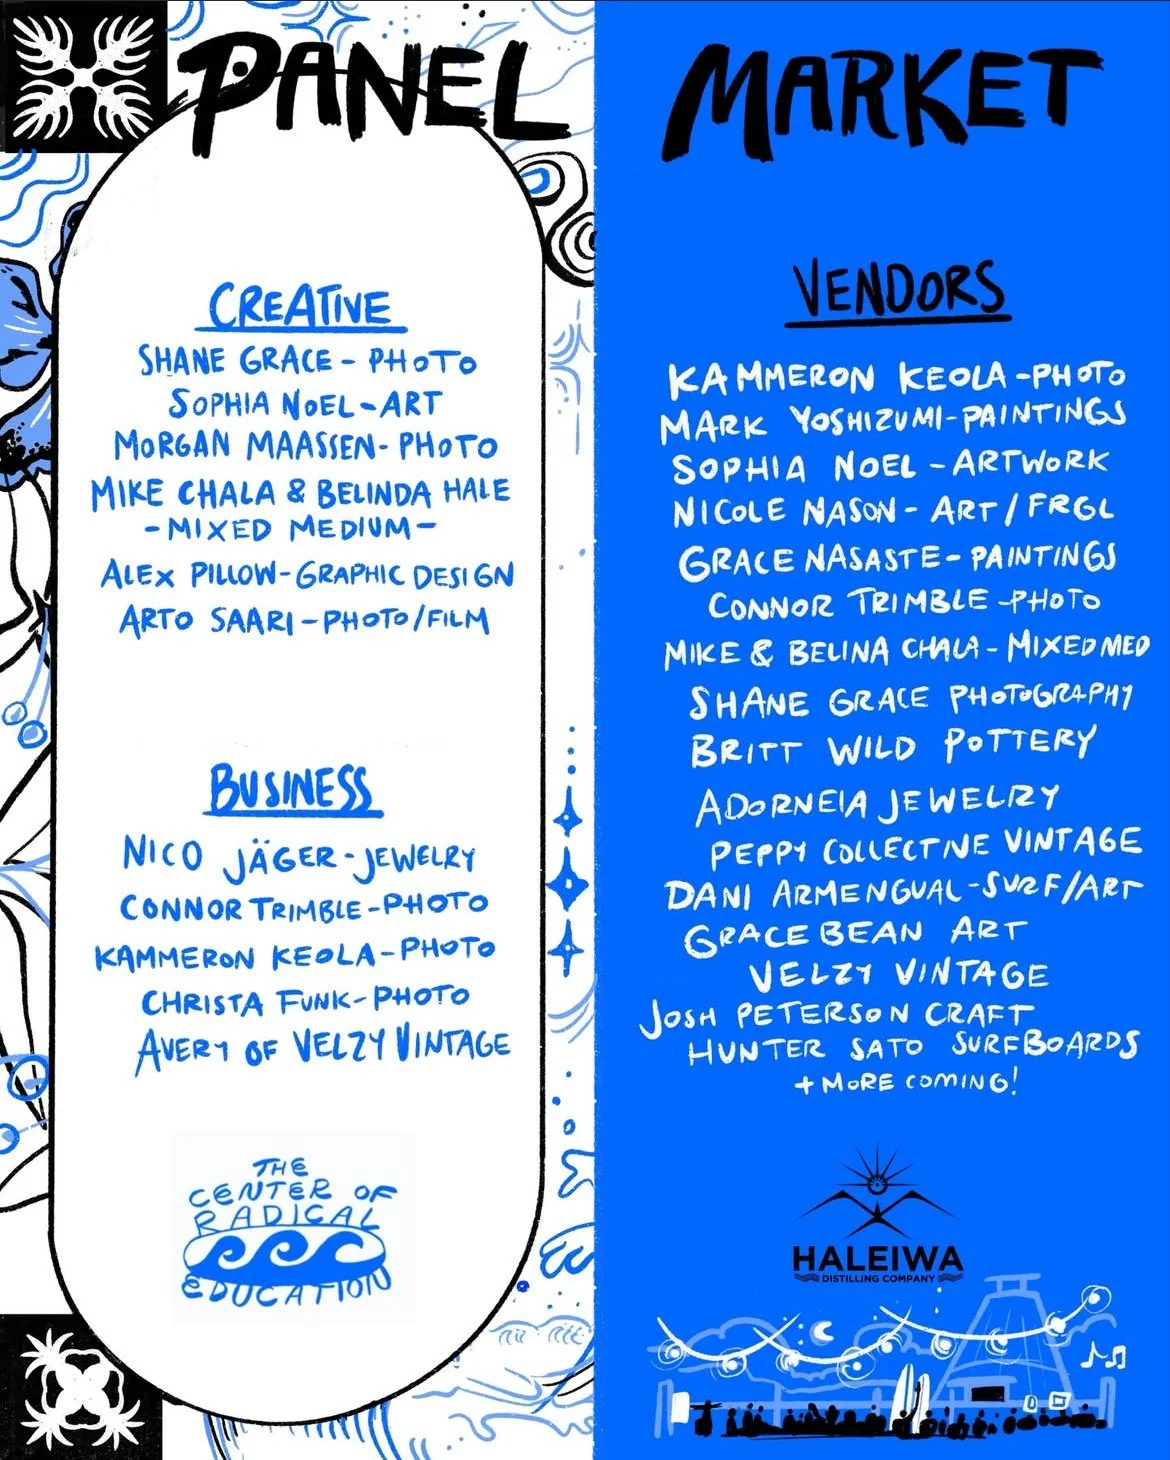 PANEL
CREATIVE
SHANE GRACE - PHOTO
SOPHIA NOEL - ART
MORGAN MAASSEN - PHOTO
MIKE CHALA & BELINDA HALE
- MIXED MEDIUM -
ALEX PILLOW - GRAPHIC DESIGN
ARTO SAARI - PHOTO/FILM
BUSINESS
NICO JÄGER - JEWELRY
CONNOR TRIMBLE - PHOTO
KAMMERON KEOLA - PHOTO
CHRISTA FUNK - PHOTO
AVERY OF VELZY VINTAGE
THE
CENTER OF
RADICAL
EDUCATION
MARKET
VENDORS
KAMMERON KEOLA - PHOTO
MARK YOSHIZUMI - PAINTINGS
SOPHIA NOEL - ARTWORK
NICOLE NASON - ART / FRGL
GRACE NASASTE - PAINTINGS
CONNOR TRIMBLE - PHOTO
MIKE & BELINA CHALA - MIXED MED
SHANE GRACE PHOTOGRAPHY
BRITT WILD POTTERY
ADORNEIA JEWELRY
PEPPY COLLECTIVE VINTAGE
DANI ARMENGUAL - SURF/ART
GRACE BEAN ART
VELZY VINTAGE
JOSH PETERSON CRAFT
HUNTER SATO SURFBOARDS
+ MORE COMING!
HALEIWA
DISTILLING COMPANY